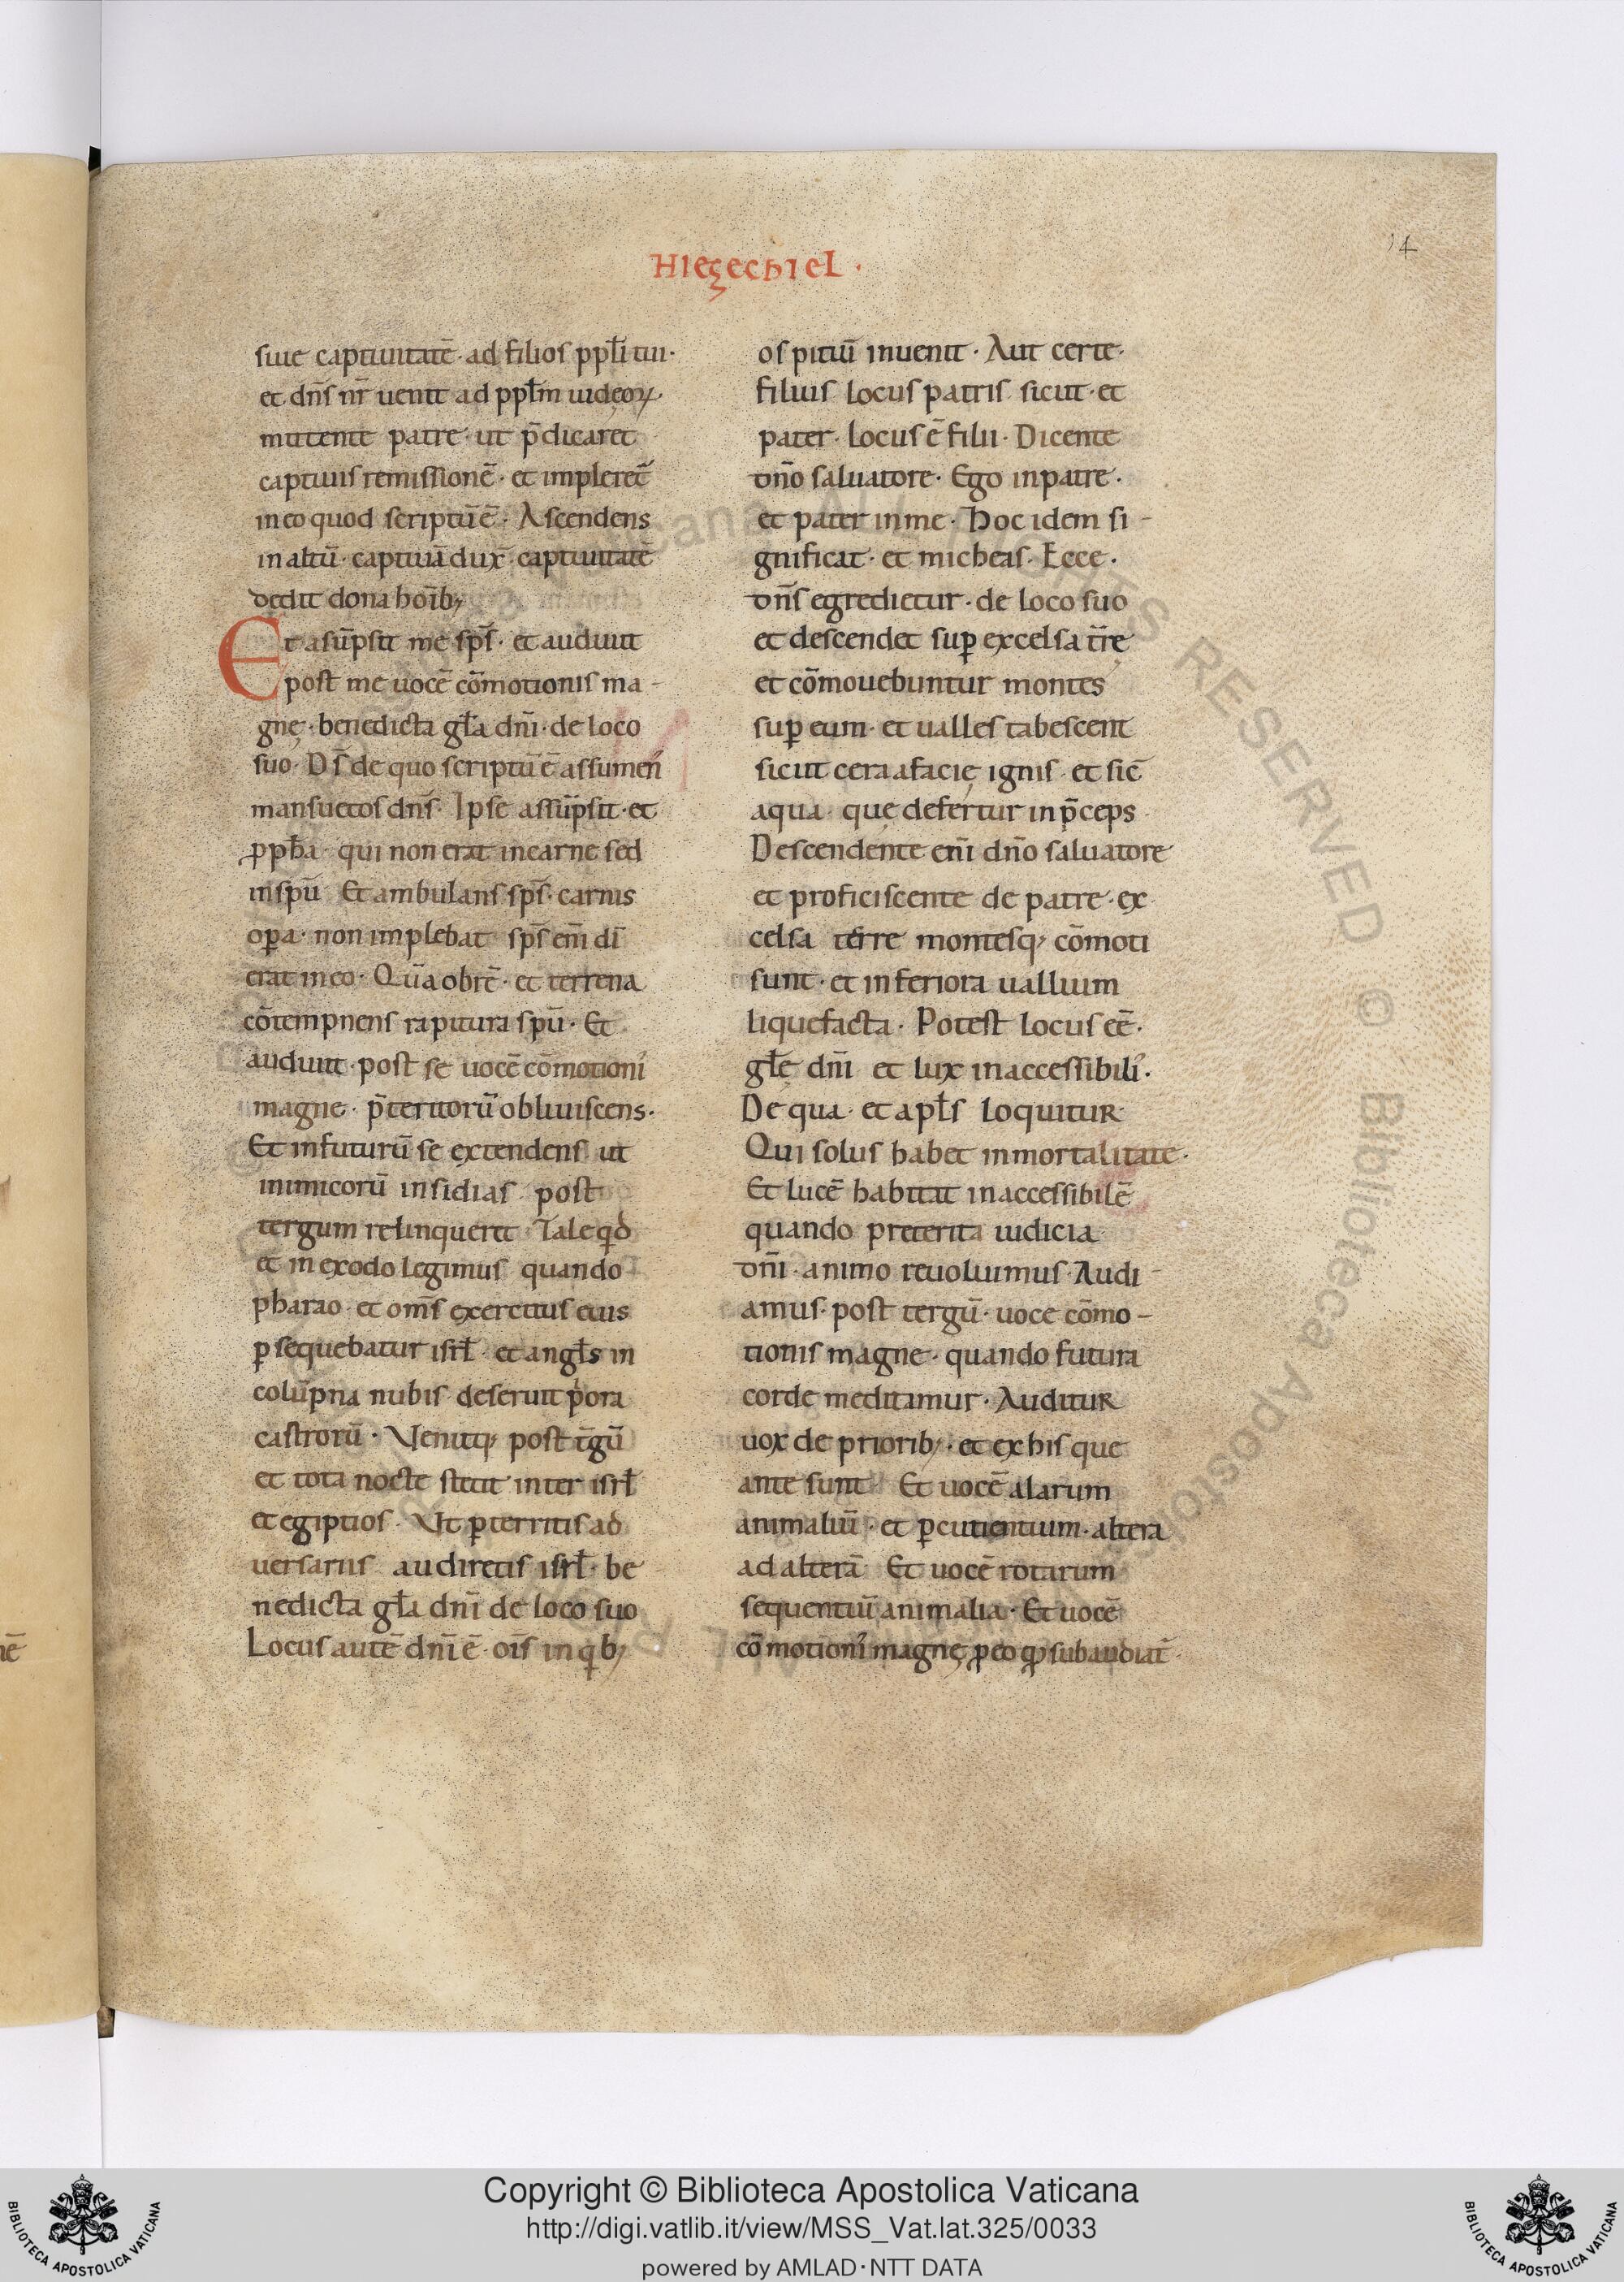 14
HIEZECHIEL ·
siue captiuitatē · ad filios ppł̄i tui ·
et dn̄s nr̄ uenit ad ppł̄m iudęoꝝ ·
mittente patre · ut p̄dicaret
captiuis remissionē · et impleret̄
in eo quod scriptū ē · Ascendens
in altū · captiuā dux̄ captiuitatē
dedit dona hoīb;
Et asūpsit me sp̄s · et audiuit
post me uocē cōmotionis ma -
gnę · benedicta gł̄a dn̄i · de loco
suo · Ds̄ de quo scriptū ē assumen̄
mansuetos dn̄s · Ipse assūpsit · et
ꝓpħa · qui non erat in carne sed
in spū Et ambulans sp̄s · carnis
oꝑa · non implebat sp̄s enī dī
erat in eo · Quā obrē · et terrena
cōtempnens rapitura spū · Et
audiuit · post se uocē cōmotioni᾽
magne · p̄teritorū obliuiscens ·
Et in futurū se extendens ut
inimicorū insidias post
tergum relinqueret Tale qd̄
et in exodo legimus quando
pharao · et om̄s exercitus eius
ꝑsequebatur isrł · et angł̄s in
colūpna nubis deseruit pͦora
castrorū · Venitq; post t̄gū
et tota nocte stetit inter isrł
et egiptios · Vt ꝑterritis ad
uersariis audiretis isrł · be
nedicta gł̄a dn̄i de loco suo
Locus autē dn̄i ē · oīs in qͥb;
ospitiū inuenit · Aut certe ·
filius locus patris sicut · et
pater · locus ē filii · Dicente
dn̄o saluatore · Ego in patre ·
et pater in me · Hoc idem si -
gnificat · et micheas · Ecce ·
dn̄s egredietur · de loco suo
et descendet suꝑ excelsa t̄rę
et cōmouebuntur montes
suꝑ eum · et ualles tabescent
sicut cera a facię ignis · et sic̄
aqua · quę defertur in p̄ceps
Descendente enī dn̄o saluatore
et proficiscente de patre · ex
celsa terre montesq; cōmoti
sunt · et inferiora uallium
liquefacta · Potest locus eē ·
gł̄ę dn̄i et lux inaccessibili᾽ ·
De qua · et apł̄s loquitur
Qui solus habet inmortalitate ·
Et lucē habitat inaccessibilē
quando preterita iudicia
dn̄i · animo reuoluimus · Audi -
amus · post tergū · uoce cōmo -
tionis magne · quando futura
corde meditamur · Auditur
uox de priorib; · et ex his que
ante sunt Et uocē alarum
animaliū · et ꝑcutientium · altera
ad alterā Et uocē rotarum
sequentiū animalia · Et uocē
cōmotioni᾽ magnę ꝓ eo qđ subaudiat̄ ·
Copyright © Biblioteca Apostolica Vaticana
http://digi.vatlib.it/view/MSS_Vat.lat.325/0033
powered by AMLAD · NTT DATA
BIBLIOTECA APOSTOLICA VATICANA
BIBLIOTECA APOSTOLICA VATICANA